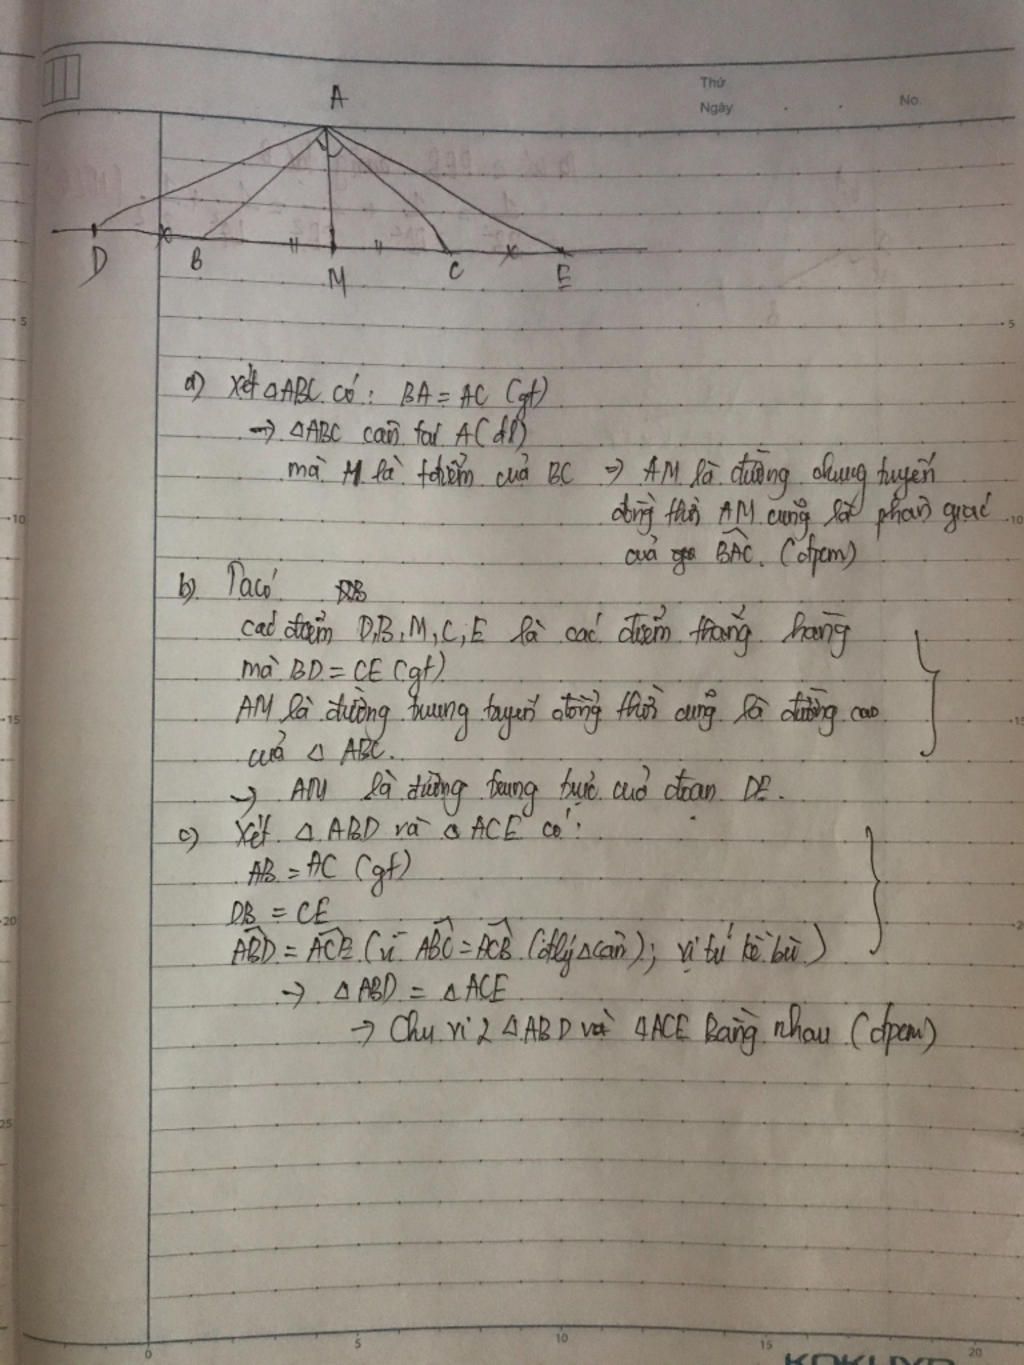 Thứ
Ngày . . No.
A
D B M C E
a) Xét △ABC có: BA = AC (gt)
→ △ABC cân tại A (đl)
mà M là tđiểm của BC → AM là đường chung tuyến
đồng thời AM cũng là phân giác
của BAC. (đpcm)
b) Ta có
các điểm D,B,M,C,E là các điểm thẳng hàng
mà BD = CE (gt)
AM là đường trung tuyến đồng thời cũng là đường cao
của △ ABC.
→ AM là đường trung trực của đoạn DE.
c) Xét △ ABD và △ ACE có:
AB = AC (gt)
DB = CE
ABD = ACE (vì ABC = ACB (đlý △cân); vị trí kề bù)
→ △ABD = △ACE
→ Chu vi 2 △ABD và △ACE Bằng nhau (đpcm)
5
5
10
10
15
15
20
25
0 5 10 15 20
KOKUYO